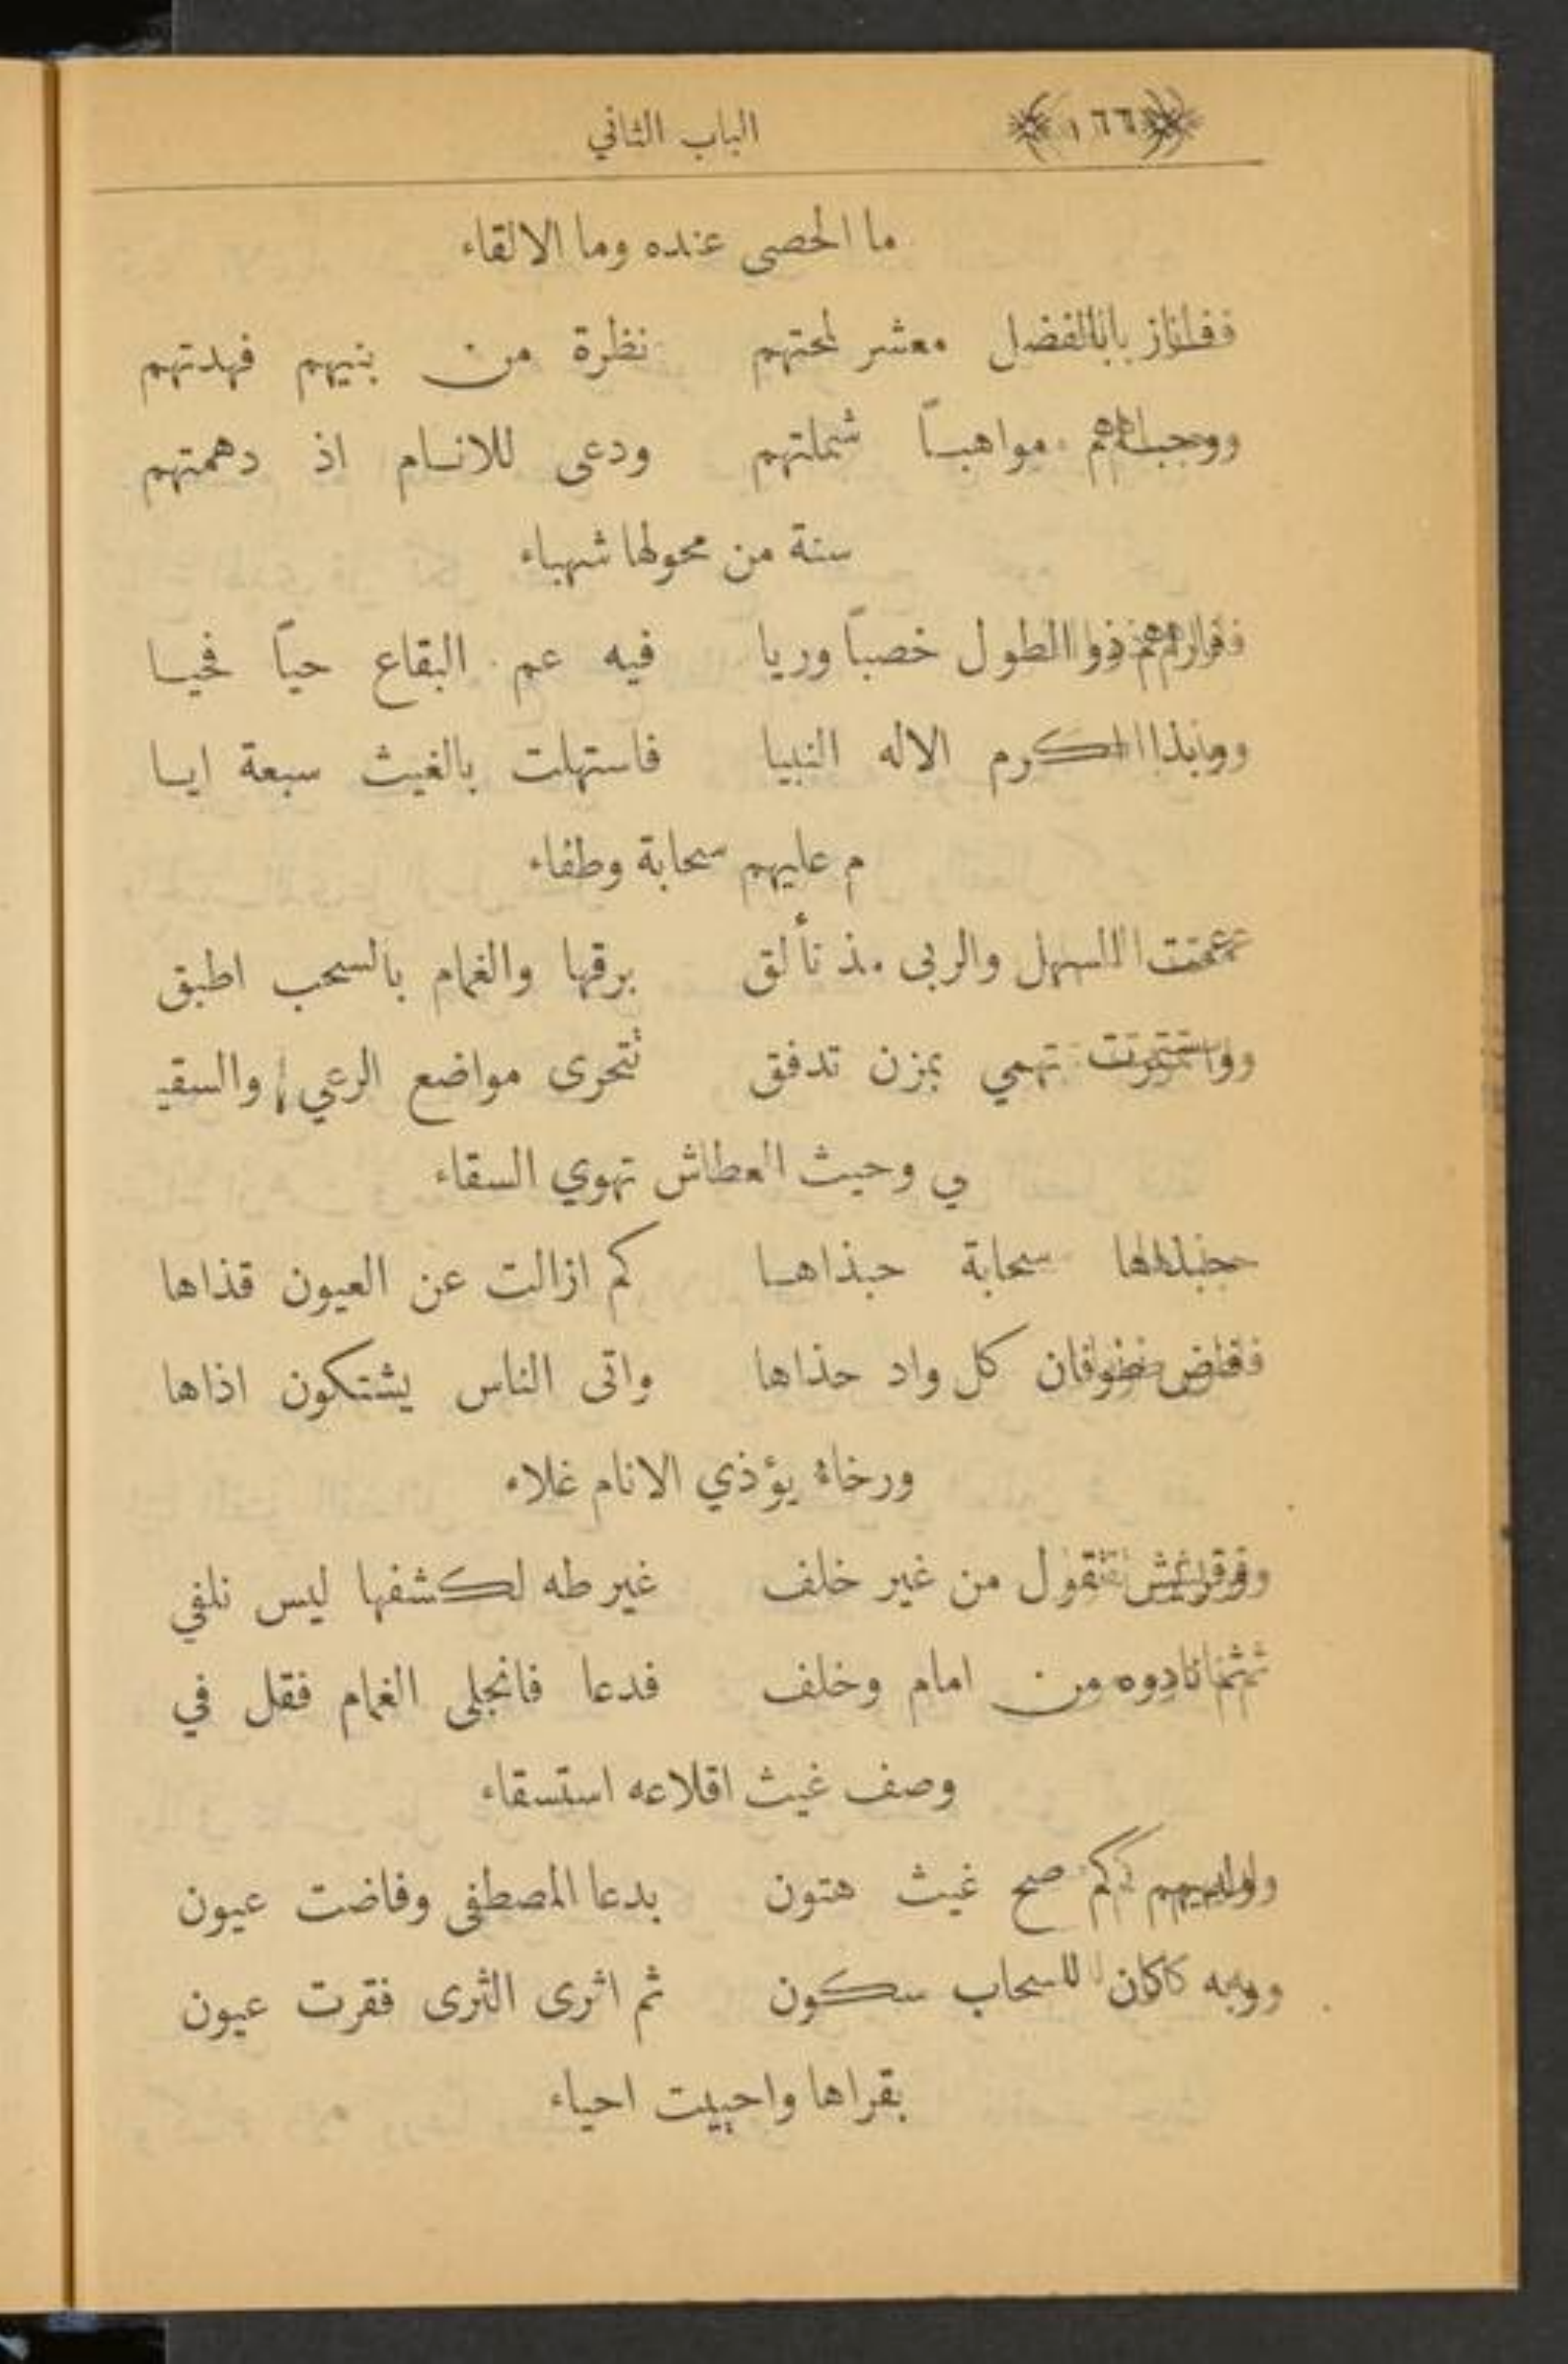 ﴿١٦٦﴾ الباب الثاني
ما الحصى عنده وما الالقاء
فاز بالفضل معشر لمحتهم نظرة من بنيهم فهدتهم
وحباهم مواهباً شملتهم ودعى للانام اذ دهمتهم
سنة من محولها شهباء
ذو الطول خصباً وريا فيه عم البقاع حياً فحيا
الكرم الاله النبيا فاستهلت بالغيث سبعة ايا
م عليهم سحابة وطفاء
عمت السهل والربى مذ تألق برقها والغمام بالسحب اطبق
واستمرت تهمي بمزن تدفق تتحرى مواضع الرعي والسقـ
ي وحيث العطاش تهوي السقاء
حبذاها سحابة حبذاها كم ازالت عن العيون قذاها
كل واد حذاها واتى الناس يشتكون اذاها
ورخاء يؤذي الانام غلاء
وقريش تقول من غير خلف غير طه لكشفها ليس نلفي
ثم نادوه من امام وخلف فدعا فانجلى الغمام فقل في
وصف غيث اقلاعه استسقاء
ولديهم كم صح غيث هتون بدعا المصطفى وفاضت عيون
وبه كان للسحاب سكون ثم اثرى الثرى فقرت عيون
بقراها واحييت احياء